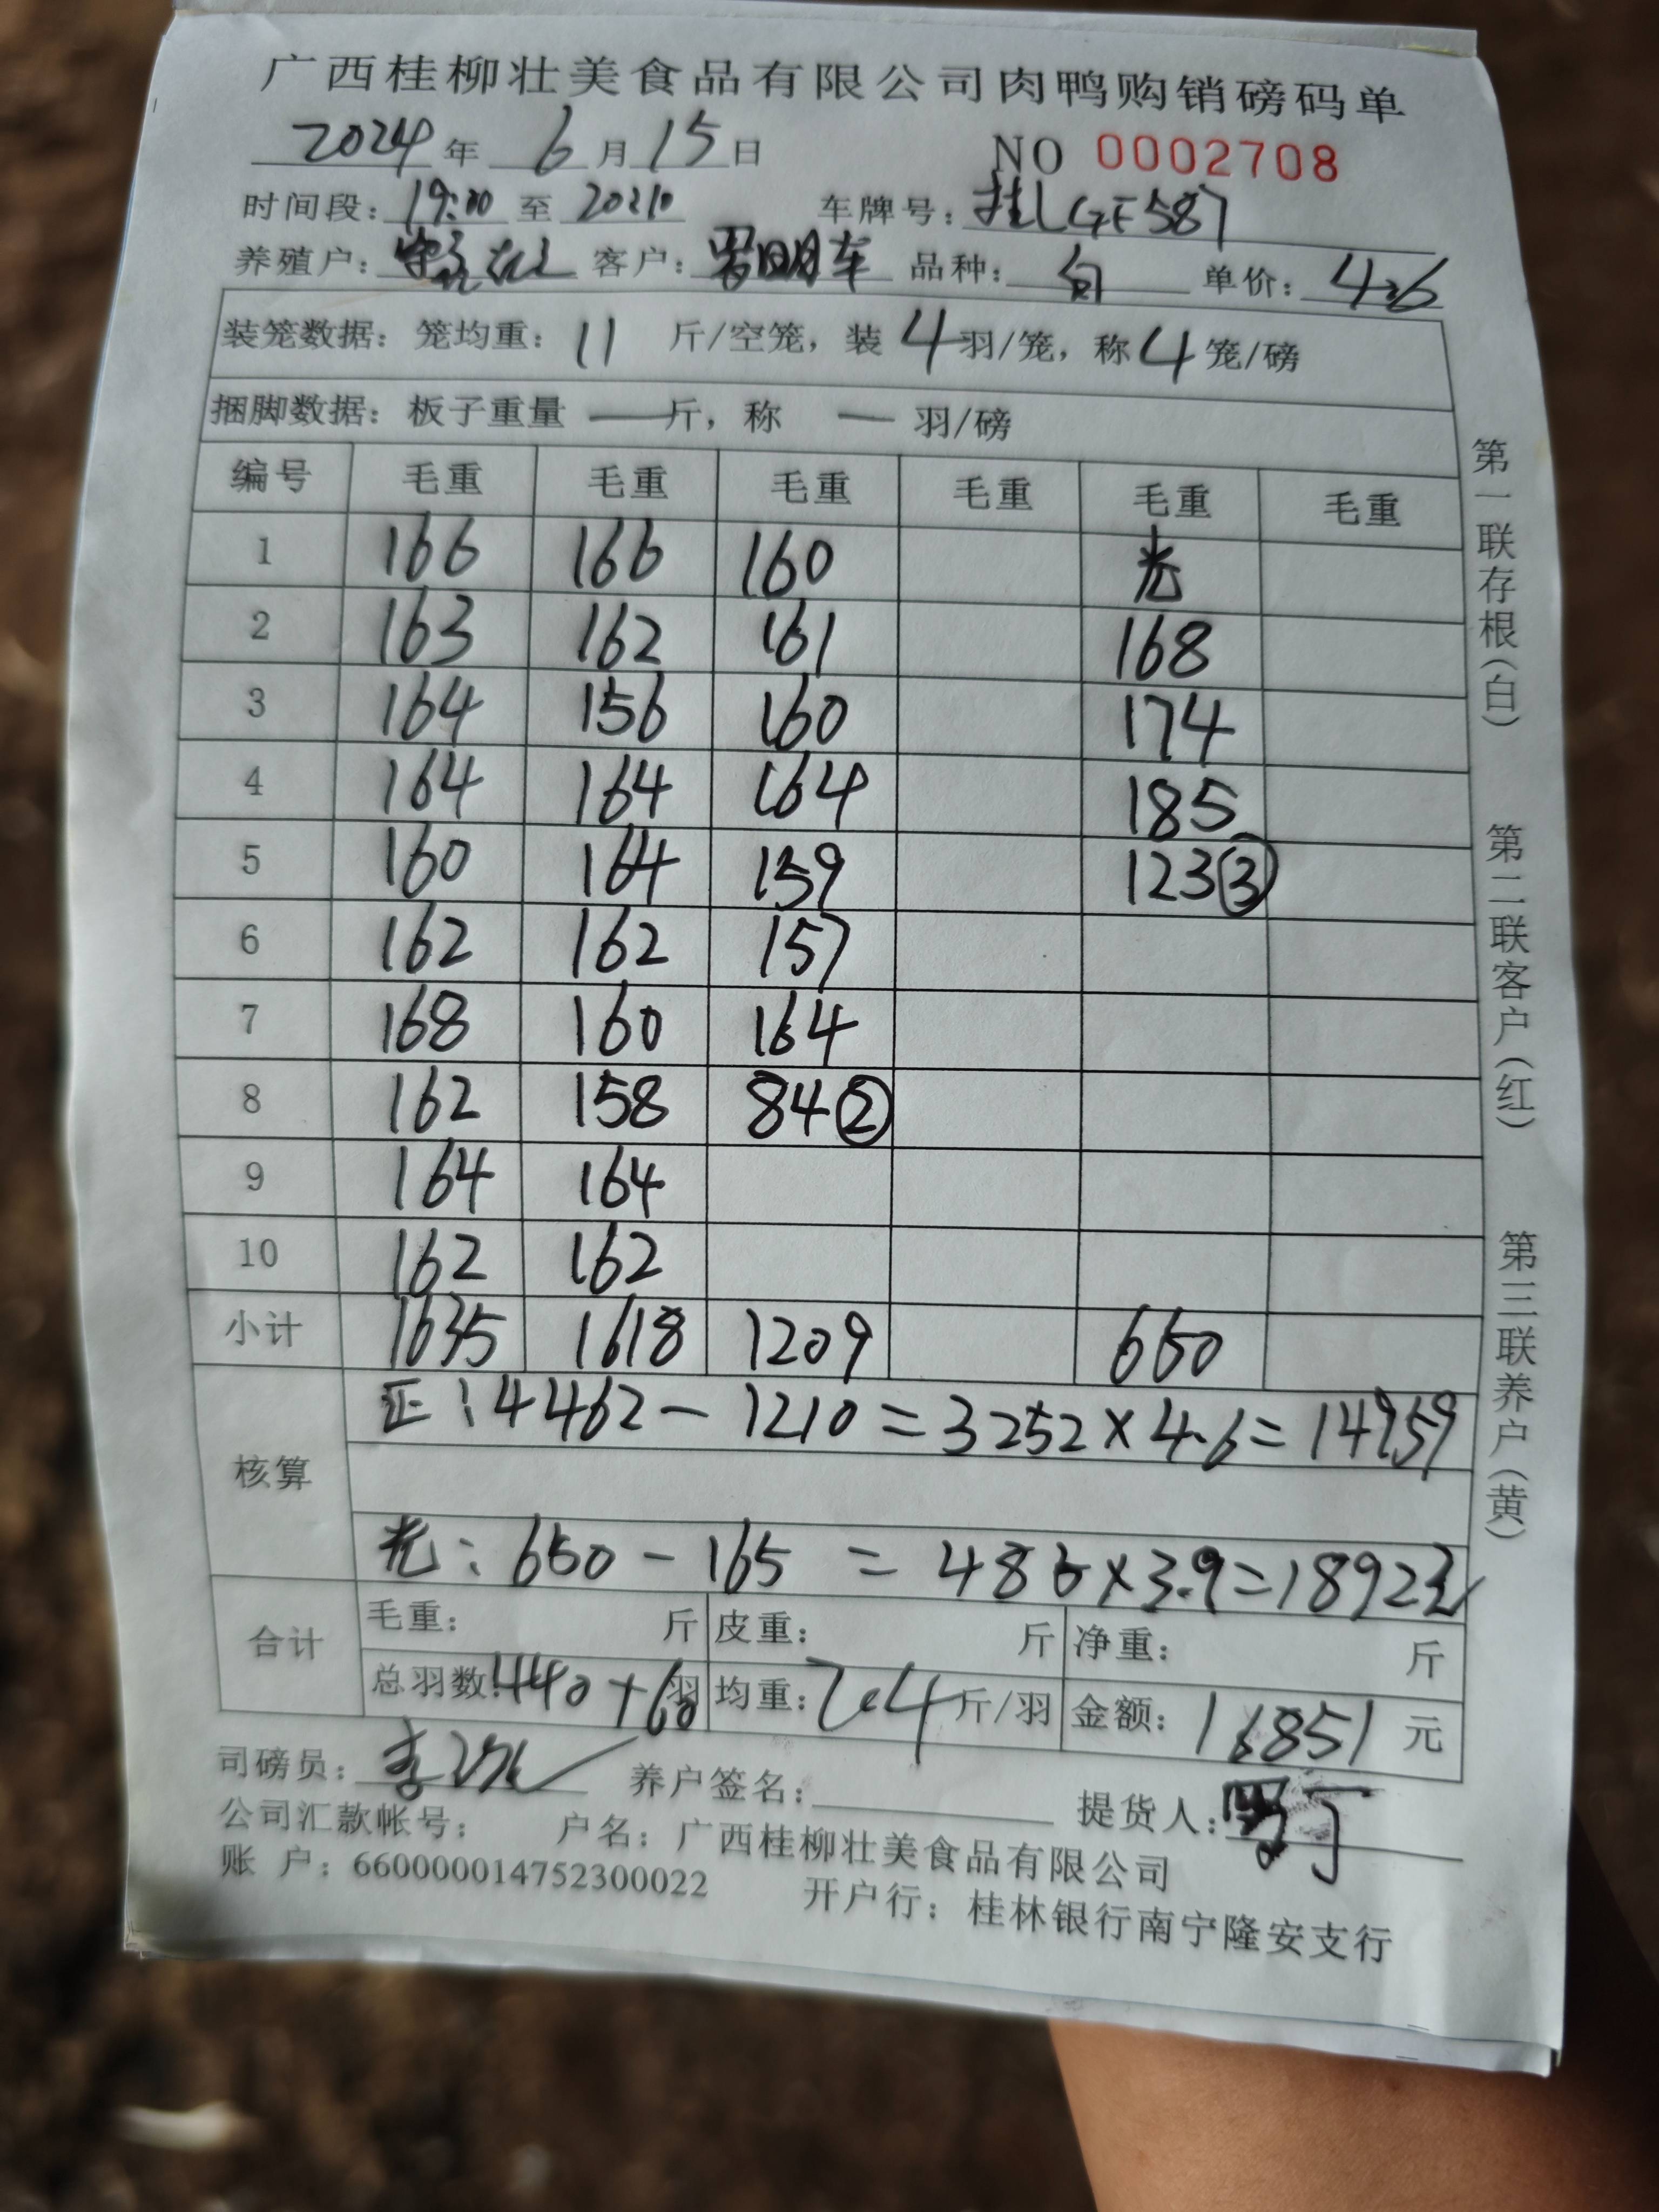 广西桂柳壮美食品有限公司肉鸭购销磅码单
2024年 6月15日 NO 0002708
时间段: 19:00 至 20:10 车牌号: 桂LGF587
养殖户: 客户: 罗明车 品种: 白 单价: 4.6
装笼数据: 笼均重: 11 斤/空笼, 装 4羽/笼, 称4笼/磅
捆脚数据: 板子重量 — 斤, 称 — 羽/磅
编号 毛重 毛重 毛重 毛重 毛重 毛重
1 166 166 160 光
2 163 162 161 168
3 164 156 160 174
4 164 164 164 185
5 160 164 159 123③
6 162 162 157
7 168 160 164
8 162 158 84②
9 164 164
10 162 162
小计 1635 1618 1209 650
核算
正:4462-1210=3252×4.6=14959
光:650-165=485×3.9=1892元
合计
毛重: 斤 皮重: 斤 净重: 斤
总羽数:440+60羽 均重:7.4斤/羽 金额:16851元
司磅员: 养户签名: 提货人:
公司汇款帐号: 户名: 广西桂柳壮美食品有限公司
账 户: 660000014752300022 开户行: 桂林银行南宁隆安支行
第一联存根(白) 第二联客户(红) 第三联养户(黄)